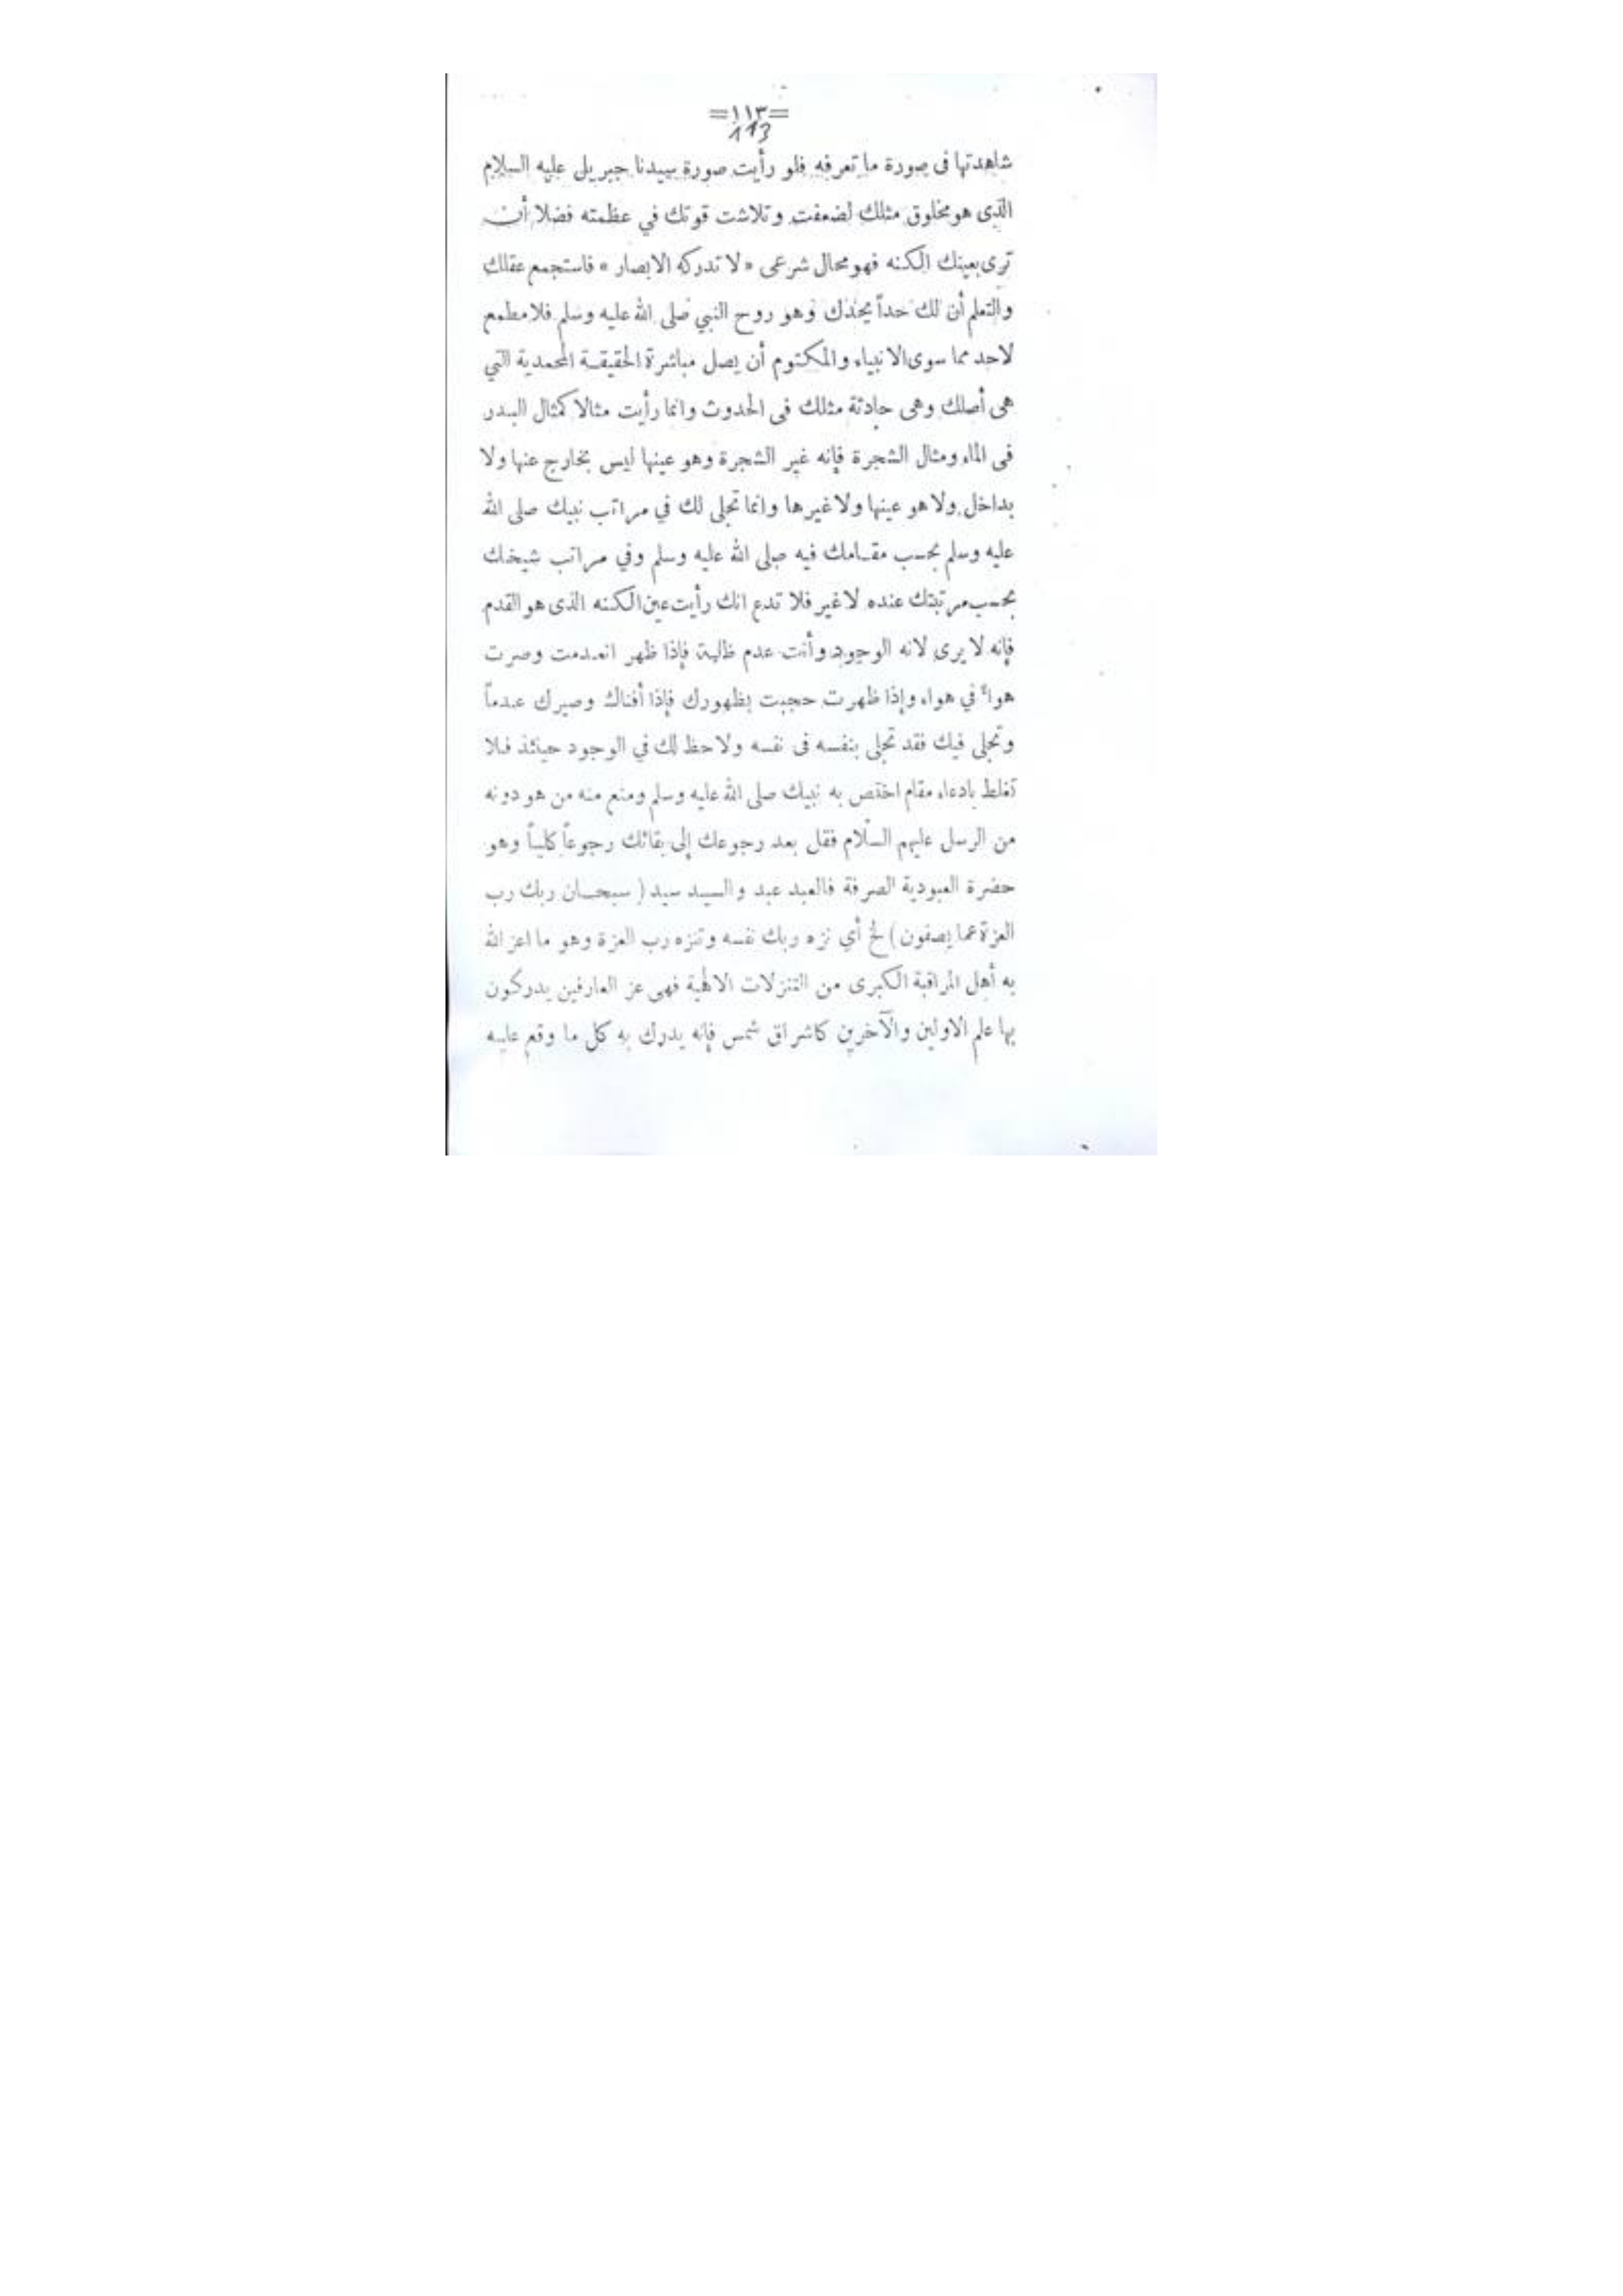 =١١٣=
113
شاهدتها فى صورة ما تعرفه فلو رأيت صورة سيدنا جبريل عليه السلام
الذى هو مخلوق مثلك لضعفت وتلاشت قوتك في عظمته فضلا أن
ترى بعينك الكنه فهو محال شرعى « لا تدركه الابصار » فاستجمع عقلك
والتعلم أن لك حداً يحدك وهو روح النبي صلى الله عليه وسلم فلا مطمع
لاحد مما سوى الانبياء والمكتوم أن يصل مباشرة الحقيقة المحمدية التي
هى أصلك وهى حادثة مثلك فى الحدوث وانما رأيت مثالا كمثال البدر
فى الماء ومثال الشجرة فإنه غير الشجرة وهو عينها ليس بخارج عنها ولا
بداخل ولا هو عينها ولا غيرها وانما تجلى لك في مراتب نبيك صلى الله
عليه وسلم بحسب مقامك فيه صلى الله عليه وسلم وفي مراتب شيخك
بحسب مرتبتك عنده لا غير فلا تدع انك رأيت عين الكنه الذى هو القدم
فإنه لا يرى لانه الوجود وأنت عدم ظلية فإذا ظهر انعدمت وصرت
هواءً في هواء وإذا ظهرت حجبت بظهورك فإذا أفناك وصيرك عدماً
وتجلى فيك فقد تجلى بنفسه فى نفسه ولا حظ لك في الوجود حينئذ فلا
تغلط بادعاء مقام اختص به نبيك صلى الله عليه وسلم ومنع منه من هو دونه
من الرسل عليهم السلام فقل بعد رجوعك إلى بقائك رجوعاً كلياً وهو
حضرة العبودية الصرفة فالعبد عبد والسيد سيد ( سبحان ربك رب
العزة عما يصفون ) لخ أي نزه ربك نفسه وتنزه رب العزة وهو ما اعز الله
به أهل المراقبة الكبرى من التنزلات الالهية فهى عز العارفين يدركون
بها علم الاولين والآخرين كاشراق شمس فإنه يدرك به كل ما وقع عليه